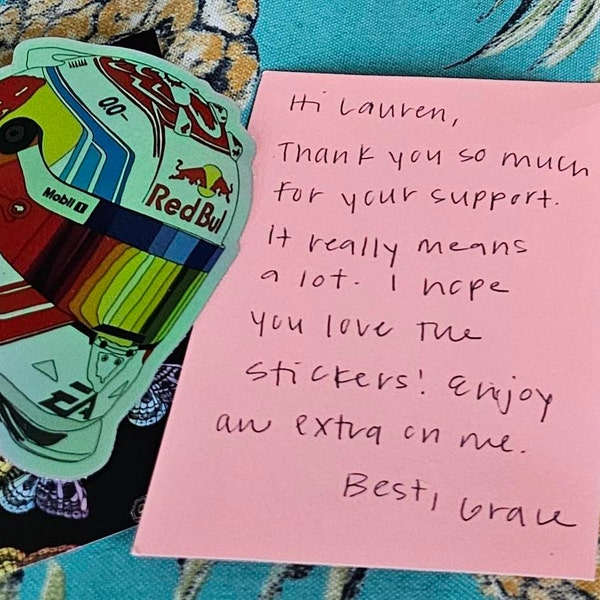 Hi Lauren,
Thank you so much
for your support.
It really means
a lot. I hope
you love the
stickers! Enjoy
an extra on me.
Best, Grace
Mobil 1
Red Bull
EA